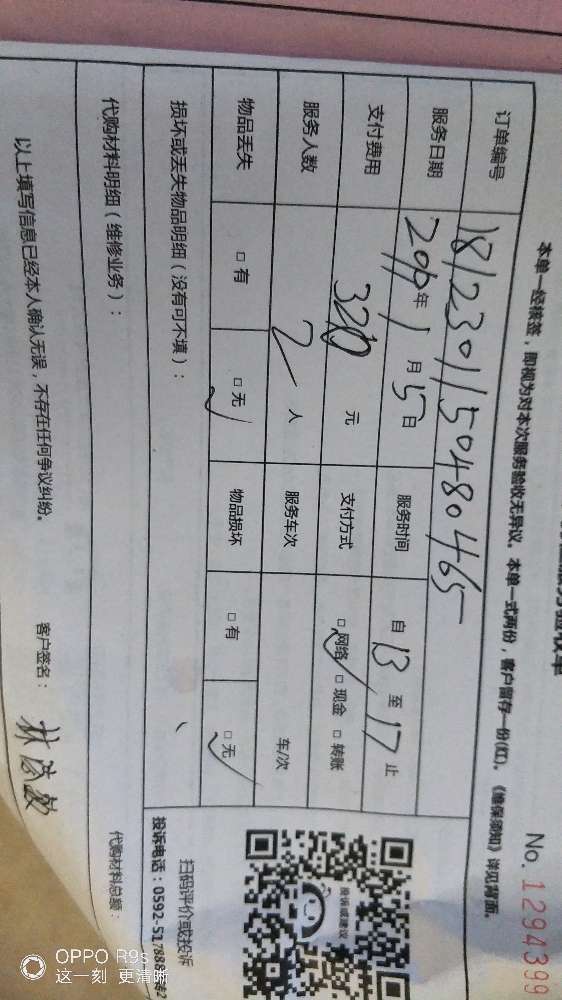 服务验收单
No. 1294399
本单一经核签，即视为对本次服务验收无异议。本单一式两份，客户留存一份(红)。《维保须知》详见背面。
订单编号 1812301150480465
服务日期 2019年1月5日 服务时间 自13至17止
支付费用 320元 支付方式 □网络 □现金 □转账
服务人数 2人 服务车次 车/次
物品丢失 □有 □无 物品损坏 □有 □无
损坏或丢失物品明细（没有可不填）：
代购材料明细（维修业务）：
代购材料总额：
以上填写信息已经本人确认无误，不存在任何争议纠纷。
客户签名：
投诉或建议
扫码评价或投诉
投诉电话：0592-5178
OPPO R9s
这一刻 更清晰